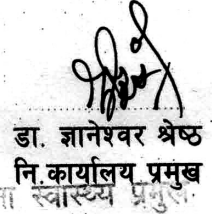 डा. ज्ञानेश्वर श्रेष्ठ
नि.कार्यालय प्रमुख
स्वास्थ्य प्रमुख